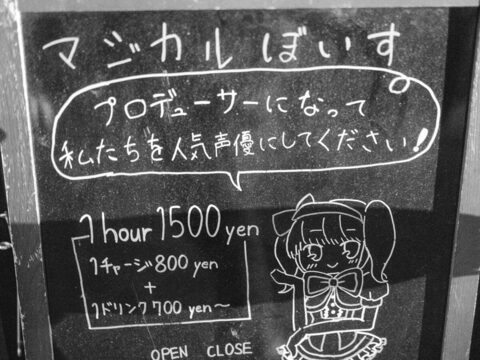 マジカルぼいす
プロデューサーになって
私たちを人気声優にしてください!
1hour 1500 yen
1チャージ800 yen
+
1ドリンク700 yen〜
OPEN CLOSE